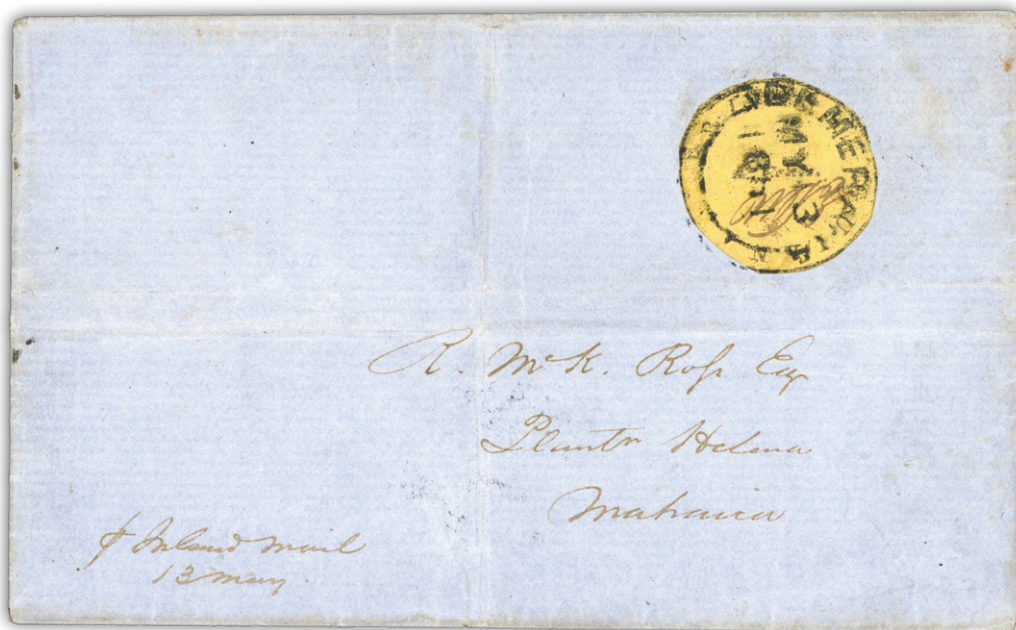 DEMERARA
MY 13
1851
R. McK. Ross Esq
Plantn Helena
Mahaica
p Inland Mail
13 May